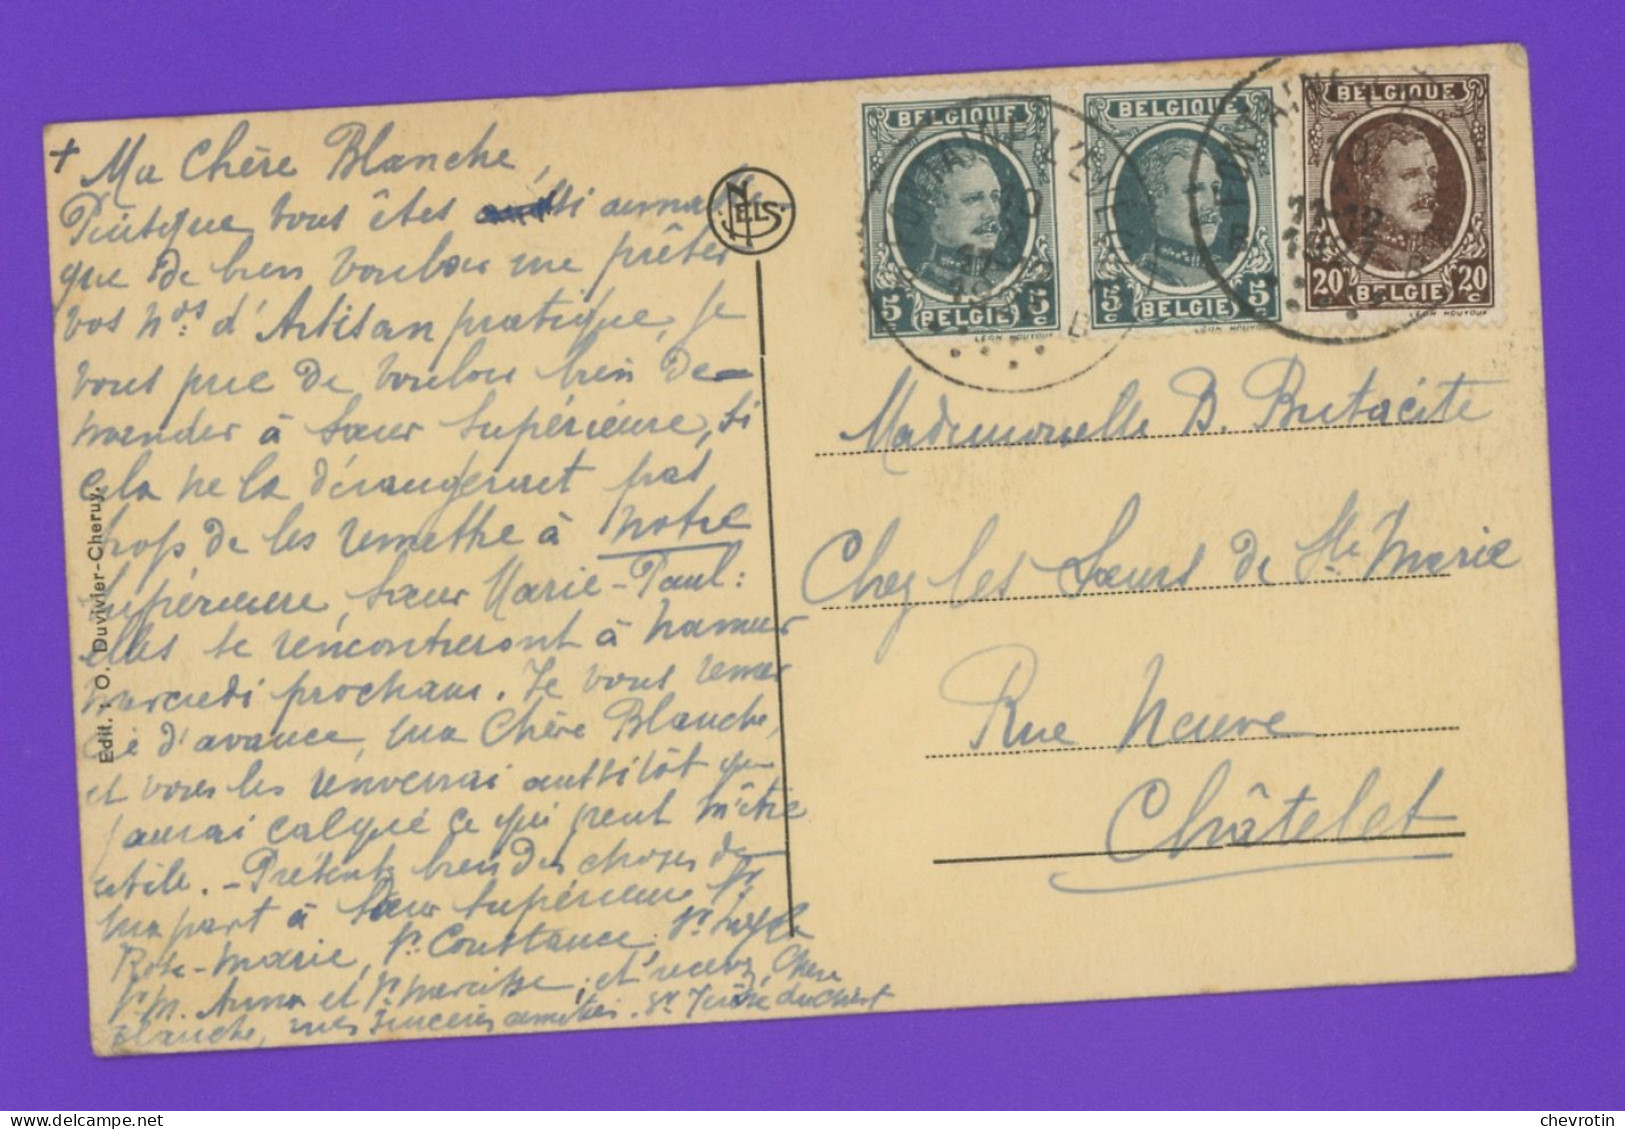 + Ma Chère Blanche,
Puisque vous êtes aussi aimable
que de bien vouloir me prêter
vos nos d'Artisan pratique, je
vous prie de vouloir bien de-
mander à Sœur Supérieure, si
cela ne la dérangerait pas
trop de les remettre à notre
Supérieure, Sœur Marie-Paul:
elles se rencontreront à Namur
mercredi prochain. Je vous remer
cie d'avance, ma Chère Blanche,
et vous les renverrai aussitôt que
j'aurai calqué ce qui peut m'être
utile. - Présentez bien des choses de
ma part à Sœur Supérieure, Sr
Rose-Marie, Sr Constance, Sr
Sr M. Anna et Sr Narcisse; et recevez, Chère
Blanche, mes sincères amitiés. Sr Thérèse du Christ
Edit. : O. Duvivier-Cheruy.
NELS
BELGIQUE
5c 5c
BELGIE
LÉON HOUYOUX
BELGIQUE
5c 5c
BELGIE
LÉON HOUYOUX
BELGIQUE
20c 20c
BELGIE
LÉON HOUYOUX
FONTAINE-L'EVEQUE
10
B
FONTAINE-L
10
11-12
B
Mademoiselle B.
Chez les Sœurs de Ste Marie
Rue Neuve
Châtelet
chevrotin